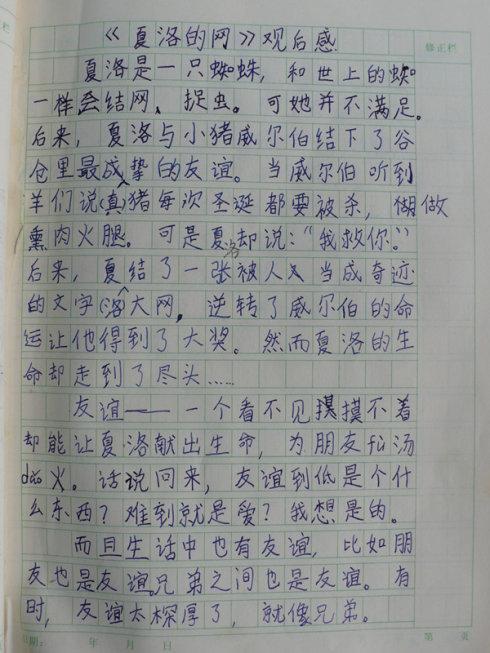 《夏洛的网》观后感
修正栏
夏洛是一只蜘蛛，和世上的蜘
一样会结网、捉虫。可她并不满足。
后来，夏洛与小猪威尔伯结下了谷
仓里最成挚的友谊。当威尔伯听到
羊们说真猪每次圣诞都要被杀，做
熏肉火腿。可是夏洛却说：“我救你。”
后来，夏结了一张被人当成奇迹
的文字洛大网，逆转了威尔伯的命
运让他得到了大奖。然而夏洛的生
命却走到了尽头……
友谊——一个看不见摸不着
却能让夏洛献出生命，为朋友fù汤
dǎo火。话说回来，友谊到低是个什
么东西？难到就是爱？我想是的。
而且生话中也有友谊，比如朋
友也是友谊兄弟之间也是友谊。有
时，友谊太深厚了，就像兄弟。
日期： 年 月 日 第 页